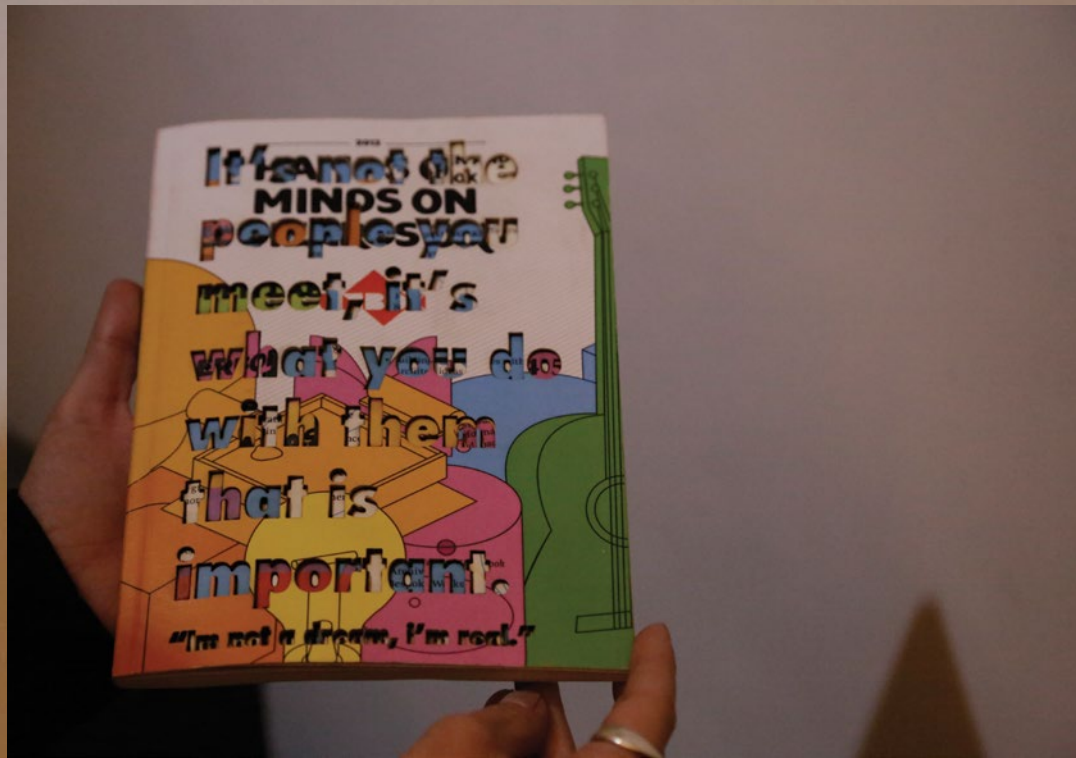 2012
It's not the
MINDS ON
people you
meet, it's
what you do
with them
that is
important.
"I'm not a dream, i'm real."